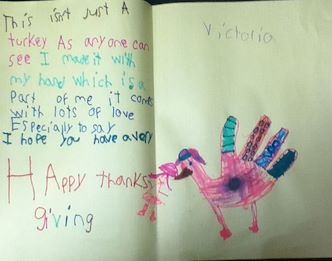 This isnt Just A
turkey As anyone can
see I made it with
my hand which is a
Part of me it comes
with lots of love
Especially to say
I hope you have a very
HAppy thanks
giving
Victoria